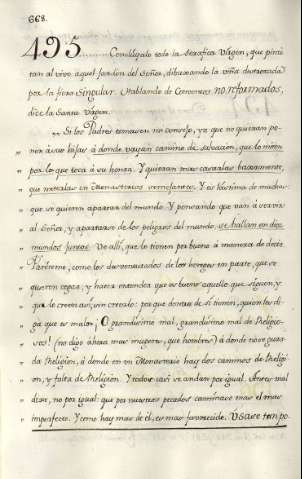 668.
495........ Concluyalo todo la Serafica Virgen, que pin
tan al vivo aquel Jardin del Señor, dibuxando la viña devorada
por la fiera Singular. Hablando de Conventos no reformados,
dice la Santa Virgen.
„ Si los Padres tomasen mi consejo, ya que no quieran po-
ner à sus hijas à donde vayan camino de salvación, que lo miren
por lo que toca à su honra. Y quieran mas casarlas baxamente,
que meterlas en Monasterios semejantes. Y es lástima de muchas
que se quieren apartar del mundo. Y pensando que van á servir
al Señor, y apartarse de los peligros del mundo, se hallan en diez
mundos juntos. Ve alli, que lo tienen por bueno à manera de decir.
Pareceme, como los desventurados de los hereges en parte, que se
quieren cegar, y hacer entender que es bueno aquello que siguen, y
que lo creen así, sin creerlo: por que dentro de sí tienen, quien les di-
ga que es malo. ¡O grandísimo mal, grandísimo mal de Religio-
sos! (no digo ahora mas mugeres, que hombres) à donde no se guar-
da Religion, à donde en un Monasterio hay dos caminos de Religi-
on, y falta de Religion. Y todos casi se andan por igual. Antes mal
dixe, no por igual: que por nuestros pecados caminase mas el mas
imperfecto. Y como hay mas de él, es mas favorecido. Usase tan po-